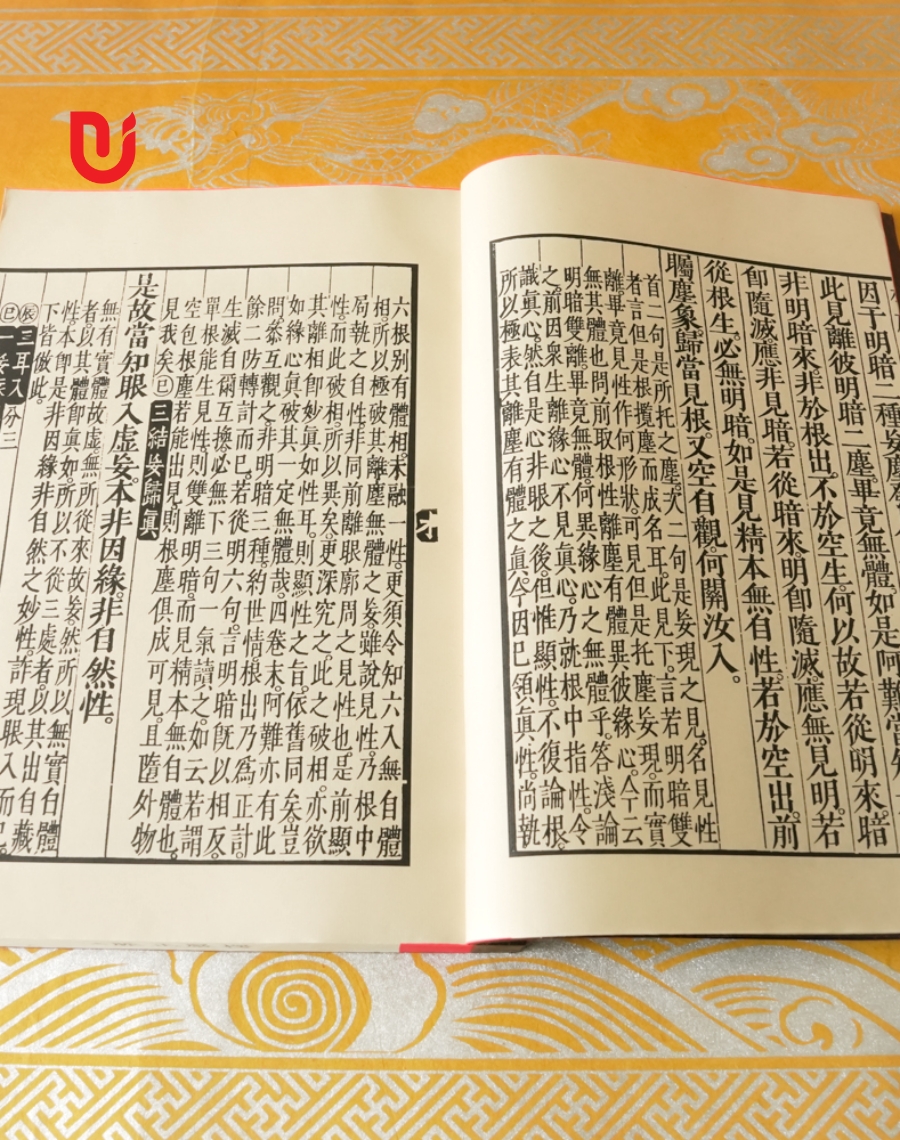 因于明暗二種妄塵發
此見離彼明暗二塵。畢竟無體。如是阿難當知
非明暗來。非於根出。不於空生。何以故。若從明來。暗
卽隨滅。應非見暗。若從暗來。明卽隨滅。應無見明。若
從根生。必無明暗。如是見精。本無自性。若於空出。前
矚塵象。歸當見根。又空自觀。何關汝入。
首二句是所托之塵。次二句是妄現之見。名見性
者。言但是根攬塵而成名耳。此見下。言若明暗雙
離。畢竟見性作何形狀。可見但是托塵妄現。而實
無其體也。問。前取根性。離塵有體。異彼緣心。今云
明暗雙離。畢竟無體。何異緣心之無體乎。答。淺論
之。前因衆生離緣心不見眞心。乃就根中指性。令
識眞心。然自是心非眼之後。但惟顯性。不復論根。
所以極表其離塵有體之眞。今因巳領眞性。尚執
六根別有體相。未融一性。更須令知六入無自體
相。所以極破其離塵無體之妄。雖說見性。乃根中
局執之自性。非同前離眼廓周之見性也。是前顯
性。而此破相。所以異矣。更深究之。此之破相。亦欲
其離相。卽妙眞如性耳。則顯性之旨。依舊同矣。豈
如緣心眞破其一定無體哉。四卷末。阿難亦有此
問。叅互觀之。非明暗三種。約世情。根出乃爲正計。
餘二防轉計而已。若從明六句。言明暗旣以相反。
生滅自爾互換。必無下三句一氣讀之。如云若謂
單根能生見性。則雙離明暗。而見精本無自體也。
空包根塵。若能出見。則根塵俱成可見。且隨外物
見我矣 巳 三結妄歸眞
是故當知眼入虛妄。本非因緣。非自然性。
無有實體故虛。無所從來故妄。然所以無實自體
者。以其體卽眞如。所以不從三處者。以其出自藏
性。本卽是非因緣非自然之妙性。許現眼入而已。
下皆倣此。
辰 三耳入 分三
巳 一妄